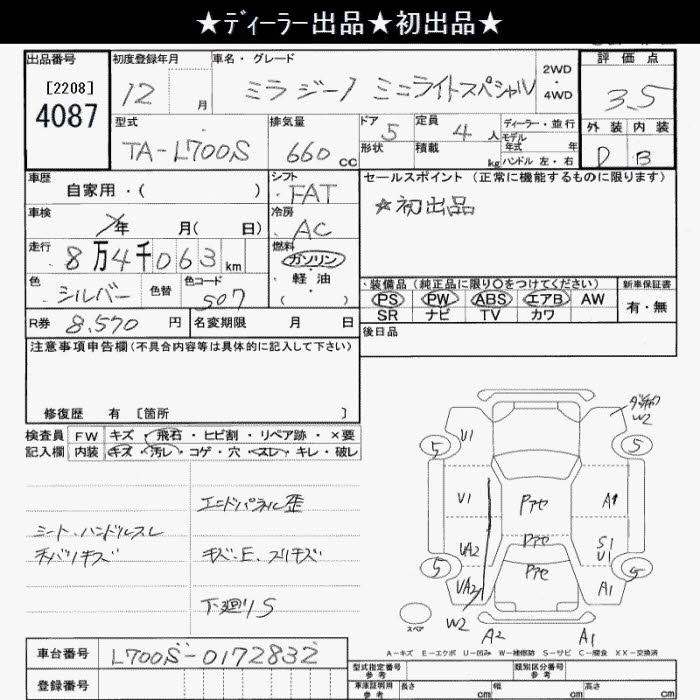 ★ディーラー出品★初出品★
出品番号
[2208]
4087
初度登録年月
12 月
車名・グレード
ミラジーノ ミニライトスペシャル
2WD
・
4WD
評価点
3.5
外装 内装
D B
型式
TA-L700S
排気量
660 cc
ドア
5
形状
定員
4 人
積載
kg
ディーラー・並行
モデル
年式 年
ハンドル 左・右
車歴
自家用・( )
シフト
FAT
車検
年 月( 日)
冷房
AC
走行
8万4千063 km
燃料
ガソリン
・
軽油
( )
色
シルバー
色替
色コード
S07
R券 8,570 円
名変期限 月 日
セールスポイント(正常に機能するものに限ります)
★初出品
・装備品(純正品に限り○をつけてください)
PS PW ABS エアB AW
SR ナビ TV カワ
新車保証書
有・無
後日品
注意事項申告欄(不具合内容等は具体的に記入して下さい)
修復歴 有 〔箇所 〕
検査員
記入欄
FW キズ・飛石・ヒビ割・リペア跡・×要
内装 キズ・汚レ・コゲ・穴・スレ・キレ・破レ
シート・ハンドルスレ
チバリキズ
エンドパネル歪
キズ・E、スリキズ
下廻りS
U1
W2
5
5
U1
Pアセ
A1
UA2
Pアセ
S1
U1
5
5
UA2
Pアセ
A1
W2
スペア
A2
A1
A-キズ E-エクボ U-凹み W-補修跡 S-サビ C-腐食 XX-交換済
車台番号
L700S-0172832
登録番号
型式指定番号
参考
類別区分番号
参考
車庫証明用
参考
長さ cm
幅 cm
高さ cm